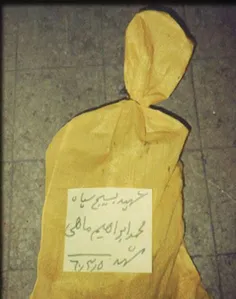 شهید بسیج سپاه
محمد ابراهیم ماهی
مشهد ۶۰/۳/۵